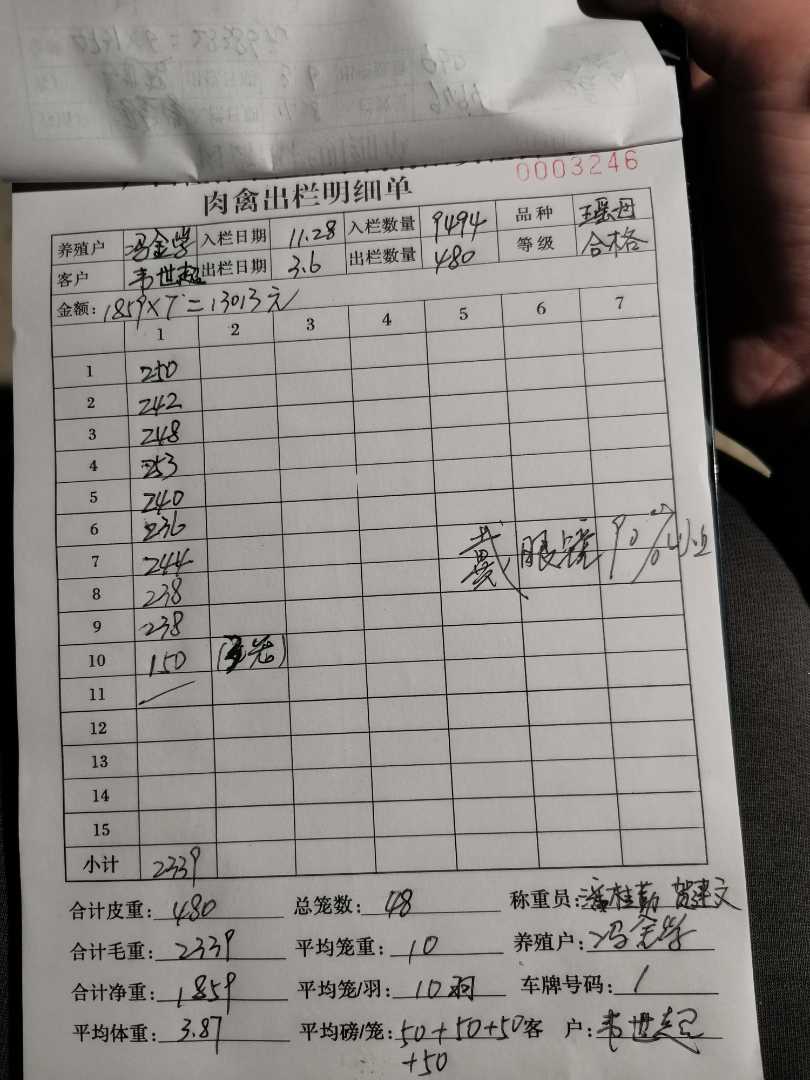 0003246
肉禽出栏明细单
养殖户 冯金学 入栏日期 11.28 入栏数量 9494 品种 瑶母
客户 韦世起 出栏日期 3.6 出栏数量 480 等级 合格
金额: 1859×7=13013元
1 2 3 4 5 6 7
1 250
2 242
3 248
4 253
5 240
6 236
7 244
戴眼镜90%以上
8 238
9 238
10 150
11
12
13
14
15
小计 2339
合计皮重: 480 总笼数: 48 称重员: 潘桂勤 贺建文
合计毛重: 2339 平均笼重: 10 养殖户: 冯金学
合计净重: 1859 平均笼/羽: 10羽 车牌号码: /
平均体重: 3.87 平均磅/笼: 50+50+50 客户: 韦世起
+50